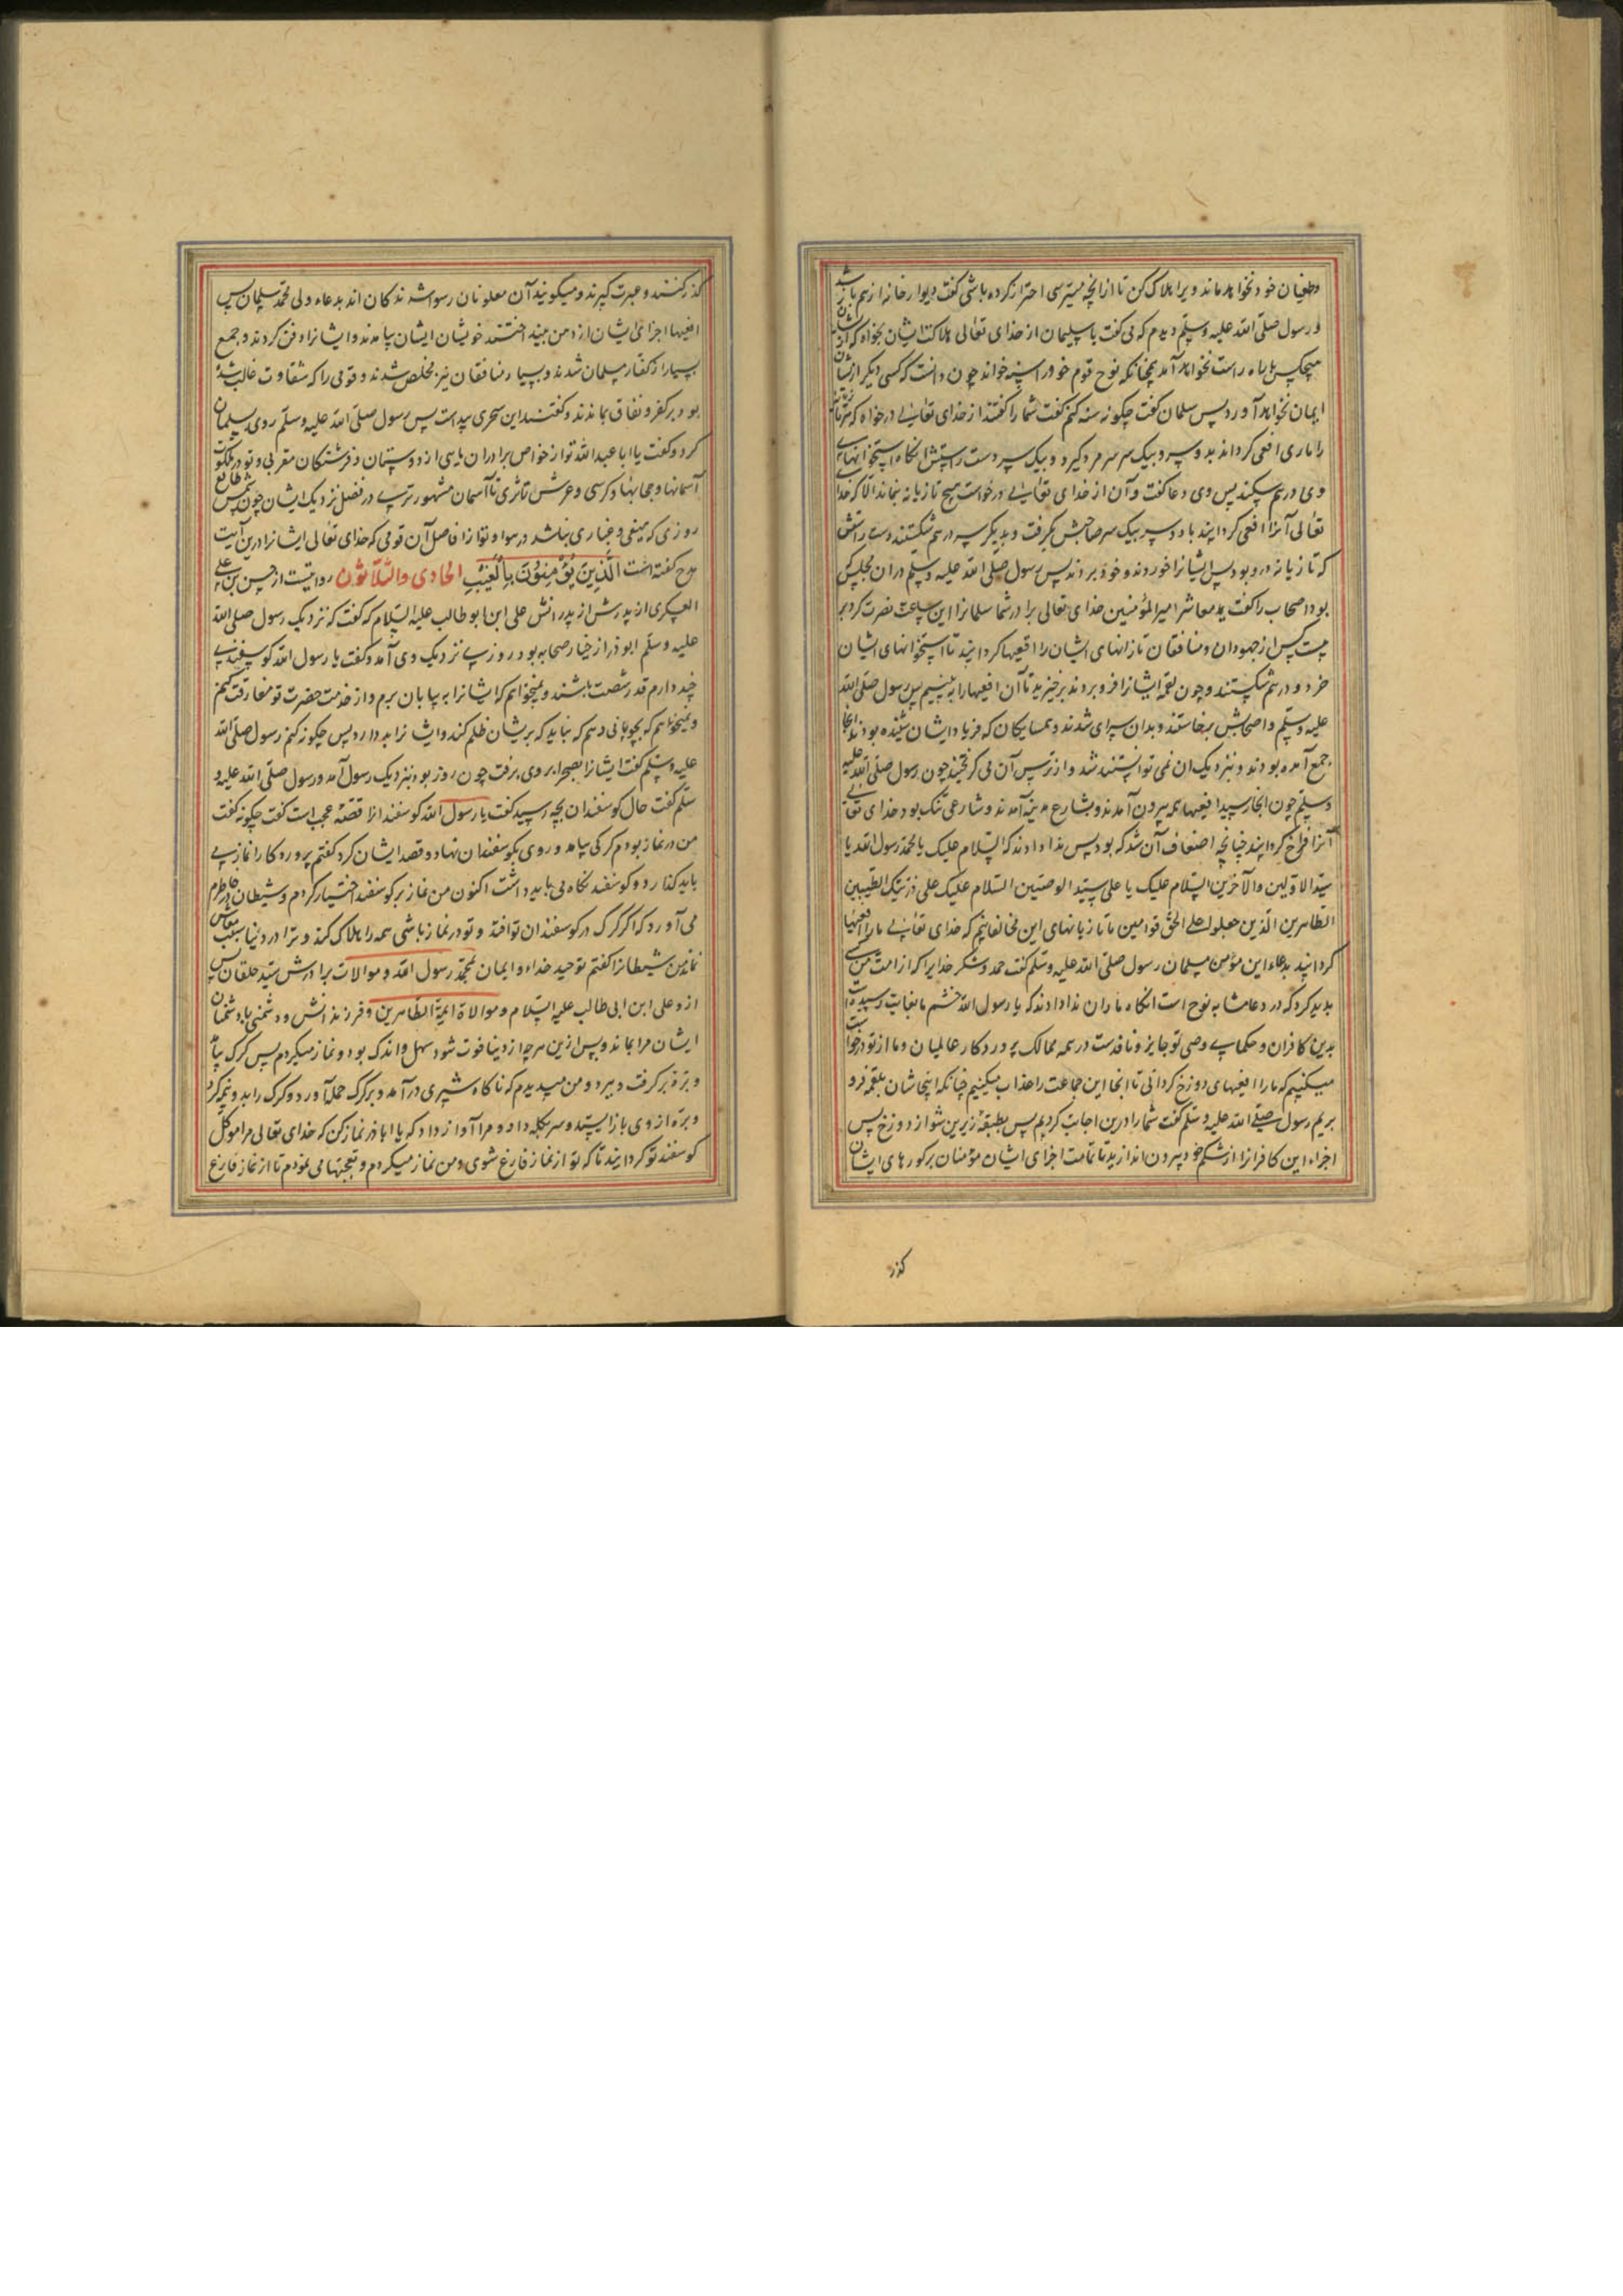 وطغیان خود نخواهد ماند ویرا هلاک کن تا از آنچه میترسی احتراز کرده باشی گفت دیوار خانه از هم باز شد
و رسول صلّی الله علیه وسلّم دیدم که می گفت یا سلیمان از خدای تعالی هلاکت ایشان بخواه که از ایشان
هیچکس با راه راست نخواهد آمد همچنانکه نوح قوم خود را سینه خواند چون دانست که کسی دیگر از ایشان
ایمان نخواهد آورد پس سلمان گفت چگونه کنم گفت شما را گفتند از خدای تعالی درخواه که هر تازیانه
را ماری افعی گرداند بدو سر و بیک سر سر مرد گیرد و بیک سر دست راستش آنگاه استخوانهای
وی درهم شکند پس وی دعا گفت و آن از خدای تعالی درخواست هیچ تازیانه نماند الّا که خدا
تعالی آنرا افعی گردانید با دو سر بیک سر صاحبش بگرفت و بدیگر سر درهم شکستند دست راستش
که تازیانه درو بود پس ایشانرا خوردند و فرو بردند پس رسول صلّی الله علیه وسلّم در آن مجلس
بود اصحاب را گفت معاشر امیر المؤمنین خدای تعالی برادر شما سلمانرا این ساعت نصرت کرد بر
بیست کس از جهودان و منافقان تازیانهای ایشان را افعیها گردانید تا استخوانهای ایشان
خرد و درهم شکستند و چون لقمه ایشانرا فرو بردند برخیزید تا آن افعیها را به بینیم پس رسول صلّی الله
علیه وسلّم و اصحابش برخاستند و بدان سرای شدند و همسایگان که فریاد ایشان شنیده بودند آنجا
جمع آمده بودند و بنزدیک آن نمی توانستند شد و از ترس آن می گریختند چون رسول صلّی الله علیه
وسلّم چون آنجا رسید افعیها همه بیرون آمدند و بشارع مدینه آمدند و شارعی تنگ بود خدای تعالی
آنرا فراخ گردانید چنانچه اضعاف آن شد که بود پس ندا دادند که السّلام علیک یا محمّد رسول الله یا
سیّد الاوّلین والآخرین السّلام علیک یا علی سیّد الوصیّین السّلام علیک علی ذرّیّتک الطّیّبین
الطّاهرین الّذین جعلوا علی الحقّ قوّامین ما تازیانهای این مخالفانیم که خدای تعالی ما را افعیها
گردانید بدعاء این مؤمن سلمان رسول صلّی الله علیه وسلّم گفت حمد و شکر خدایرا که از امت من کسی
پدید کرد که در دعا مشابه نوح است آنگاه ماران ندا دادند که یا رسول الله خشم ما بغایت رسیده است
بدین کافران و حکم تو و وصی تو جایز و نافذست در همه ممالک پروردگار عالمیان و ما از تو درخواست
میکنیم که ما را افعیهای دوزخ گردانی تا آنجا این جماعت را عذاب میکنیم چنانکه اینجاشان بلقمه فرو
بریم رسول صلّی الله علیه وسلّم گفت شما را درین اجابت کردیم پس بطبقهٔ زیرین شو از دوزخ پس
اجزاء این کافرانرا از شکم خود بیرون اندازید تا تمامت اجزای ایشان مؤمنان بر گورهای ایشان
گذر
گذر کنند و عبرت گیرند و میگویند آن ملعونان رسوا شدگان اند بدعاء ولی محمّد سلمان پس
افعیها اجزای ایشان از دهن بینداختند خویشان ایشان بیامدند و ایشانرا دفن کردند و جمع
بسیار از کفّار مسلمان شدند و بسیار منافقان نیز مخلص شدند و قومی را که شقاوت غالب شده
بود بر کفر و نفاق بماندند و گفتند این سحری پیداست پس رسول صلّی الله علیه وسلّم روی بسلمان
کرد و گفت یا ابا عبد الله تو از خواص برادران مایی از دوستان و فرشتگان مقرّبی و تو در ملکوت
آسمانها و حجابها و کرسی و عرش تا ثری تا آسمان مشهورتری در فضل نزدیک ایشان چون شمس طالع
روزی که میغی و غباری نباشد در هوا و تو از افاضل آن قومی که خدای تعالی ایشانرا درین آیت
مدح گفته است الَّذِینَ یُؤْمِنُونَ بِالْغَیْبِ الحادی والثّلاثون روایتست از حسن بن علی
العسکری از پدرش از پدرانش علی ابن ابو طالب علیه السّلام که گفت که نزدیک رسول صلّی الله
علیه وسلّم ابوذر از خیار صحابه بود روزی نزدیک وی آمد و گفت یا رسول الله گوسفندی
چند دارم قدر شصت باشند و نمیخواهم که ایشانرا به بیابان برم و از خدمت حضرت تو مفارقت کنم
و نمیخواهم که بچوپانی دهم که نباید که بریشان ظلم کند و ایشانرا بد دارد پس چگونه کنم رسول صلّی الله
علیه وسلّم گفت ایشانرا بصحرا بر وی برفت چون روز بود بنزدیک رسول آمد و رسول صلّی الله علیه و
سلّم گفت حال گوسفندان بچه رسید گفت یا رسول الله گوسفند انرا قصّهٔ عجب است گفت چگونه گفت
من در نماز بودم گرگی بیامد و روی بگوسفندان نهاد و قصد ایشان کرد گفتم پروردگارا نماز می
باید گذارد و گوسفند نگاه می باید داشت اکنون من نماز بر گوسفند اختیار کردم و شیطان در خاطرم
می آورد که اگر گرگ در گوسفندان تو افتد و تو در نماز باشی همه را هلاک کند و ترا در دنیا سبب معاش
نماند من شیطانرا گفتم توحید خداء و ایمان بمحمّد رسول الله و موالات برادرش سیّد خلقان پس
از و علی ابن ابی طالب علیه السّلام و موالاة ایمّة الطّاهرین و فرزندانش و دشمنی با دشمنان
ایشان مرا بماند و پس ازین هرچه از دنیا فوت شود سهل و اندک بود و نماز میکردم پس گرگ بیامد
و برّهٔ برگرفت و ببرد و من میدیدم که ناگاه شیری درآمد و بر گرگ حمله آورد و گرگ را بدو نیم کرد
و برّه از وی باز ستد و سر بگله داد و مرا آواز داد که یا اباذر نماز کن که خدای تعالی مرا موکّل
گوسفند تو گردانید تا که تو از نماز فارغ شوی و من نماز میکردم و تعجّبها می نمودم تا از نماز فارغ